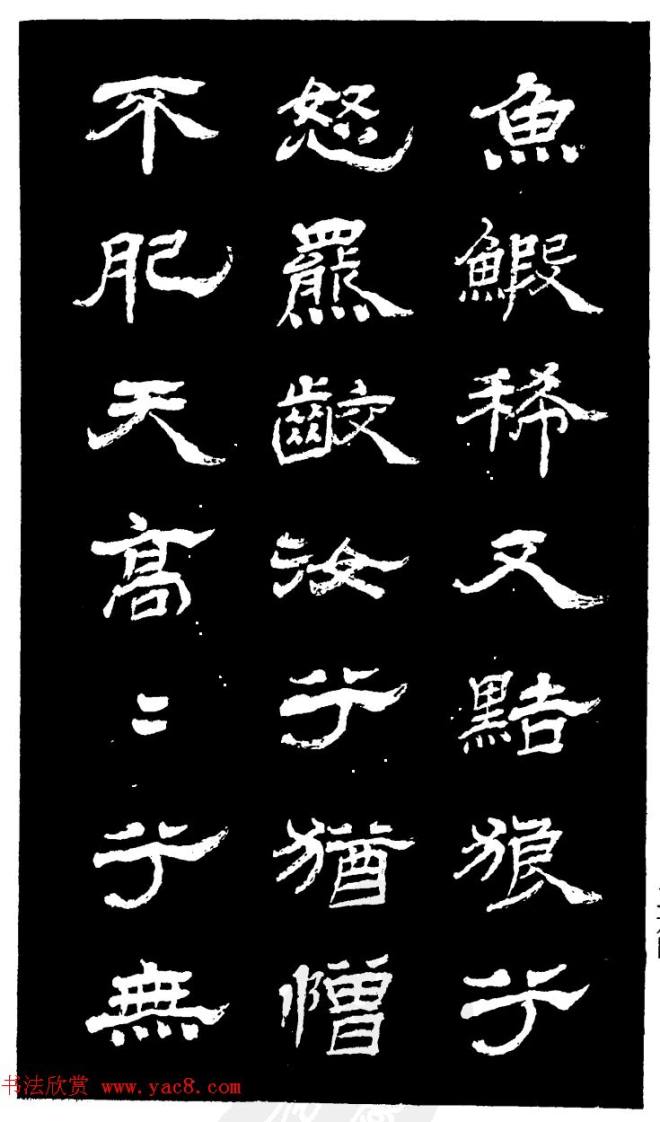 魚鰕稀又黠狼兮
怒羆齩汝兮猶憎
不肥天高〻兮無
书法欣赏 www.yac8.com